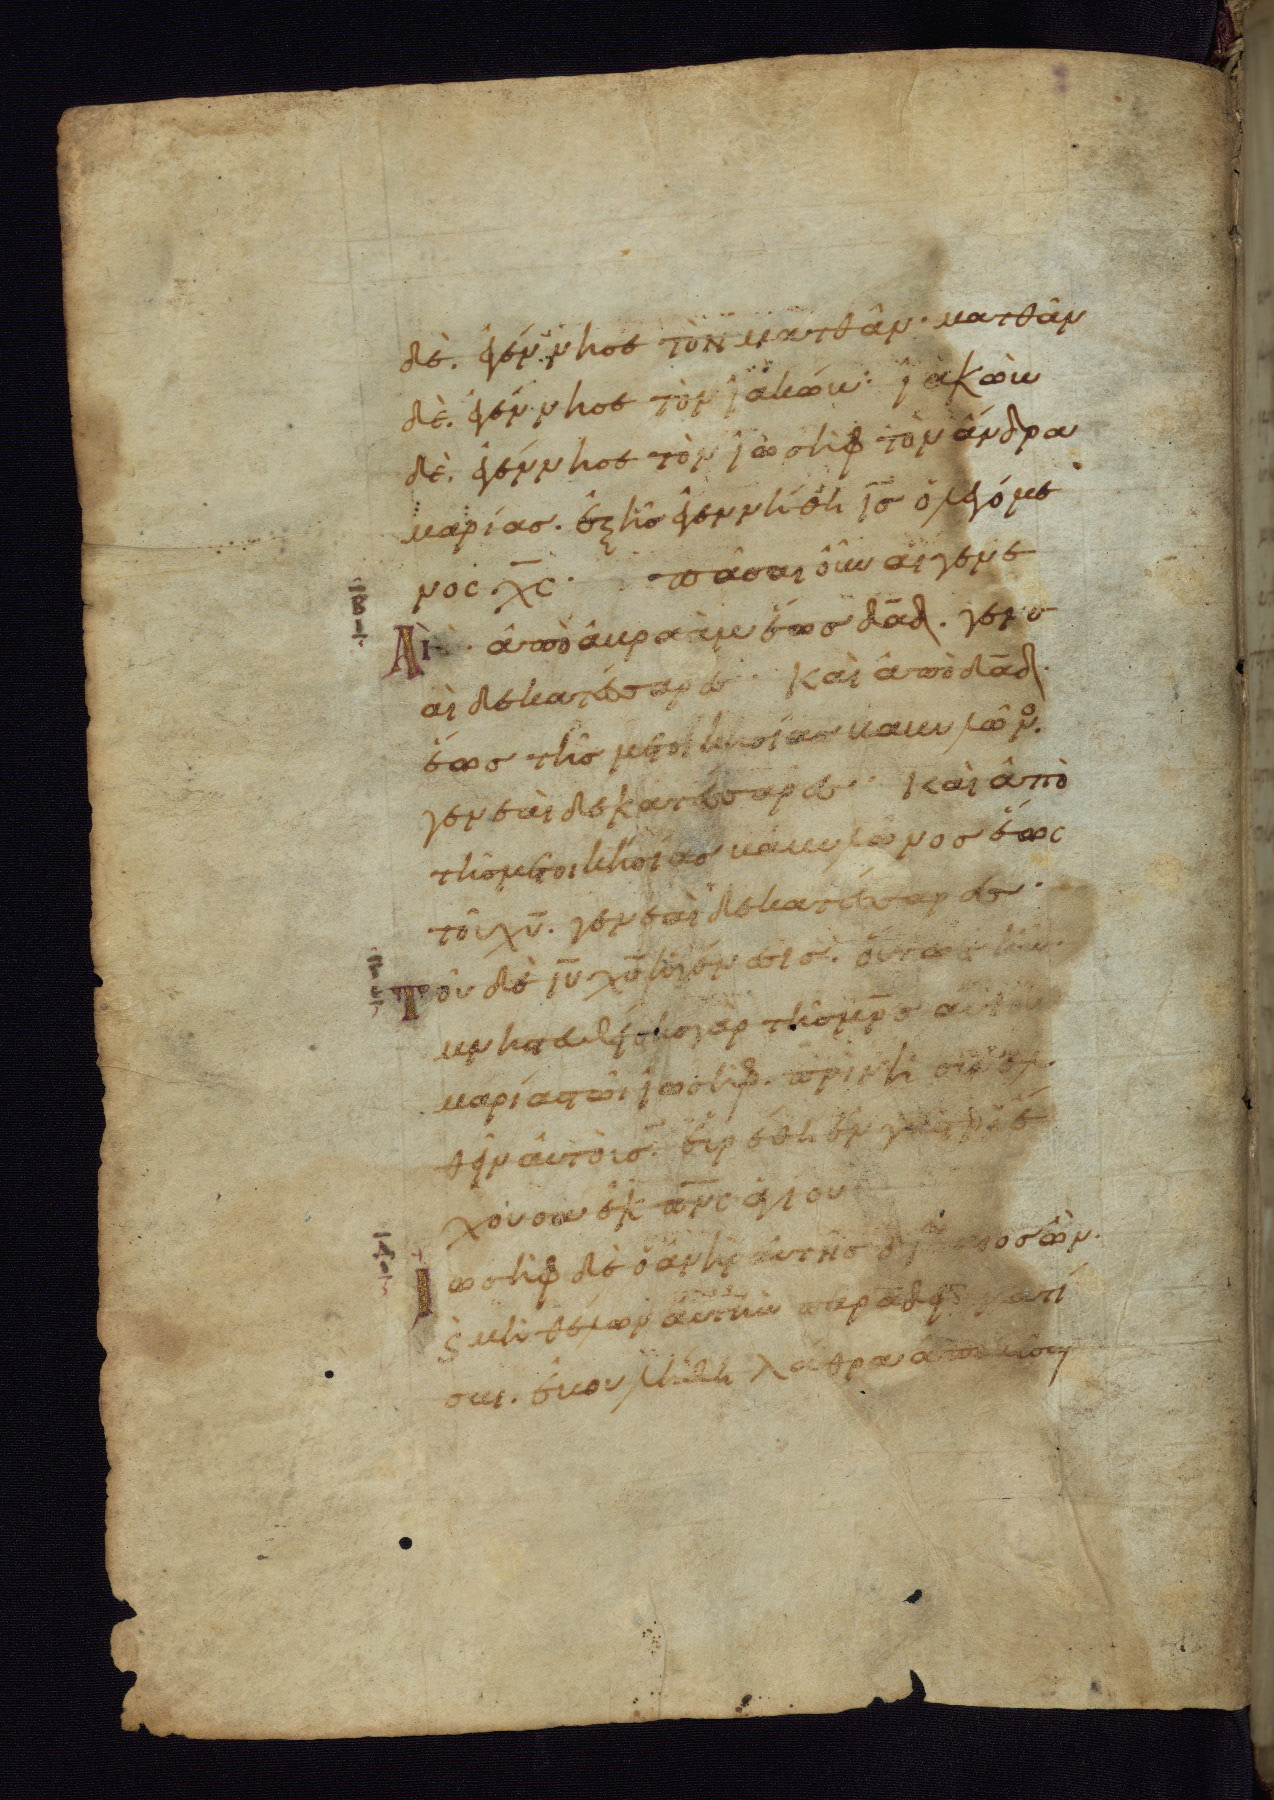 δὲ. ἐγέννησε τὸν ματθὰν· ματθὰν
δὲ. ἐγέννησε τὸν ἰακώβ· ἰακὼβ
δὲ. ἐγέννησε τὸν ἰωσὴφ τὸν ἄνδρα
μαρίας. ἐξ ἧς ἐγεννήθη ι̅ς̅ ὁ λεγόμε
νος χ̅ς̅· πᾶσαι οὖν αἱ γενε
Αὶ ἀπὸ ἀβραὰμ ἕως δ̅α̅δ̅. γενε
αὶ δεκατέσσαρες· καὶ ἀπὸ δ̅α̅δ̅.
ἕως τῆς μετοικεσίας βαβυλῶνο.
γενεαὶ δεκατέσσαρες· καὶ ἀπὸ
τῆς μετοικεσίας βαβυλῶνος ἕως
τοῦ χ̅υ̅. γενεαὶ δεκατέσσαρες·
Τοῦ δὲ ι̅υ̅ χ̅υ̅ ἡ γέννησις. οὕτως ἦν.
μνηστευθείσης γὰρ τῆς μ̅ρ̅ς̅ αὐτοῦ
μαρίας τῶι ἰωσήφ. πρὶν ἢ συνελ
θεῖν αὐτοὺς. εὑρέθη ἐν γαστρὶ ἔ
χουσα ἐκ π̅ν̅ς̅ ἁγίου
Ἰωσὴφ δὲ ὁ ἀνὴρ αὐτῆς δίκαιος ὢν.
ϗ μὴ θέλων αὐτὴν παραδειγματί
σαι. ἐβουλήθη λάθρα ἀπολῦσαι